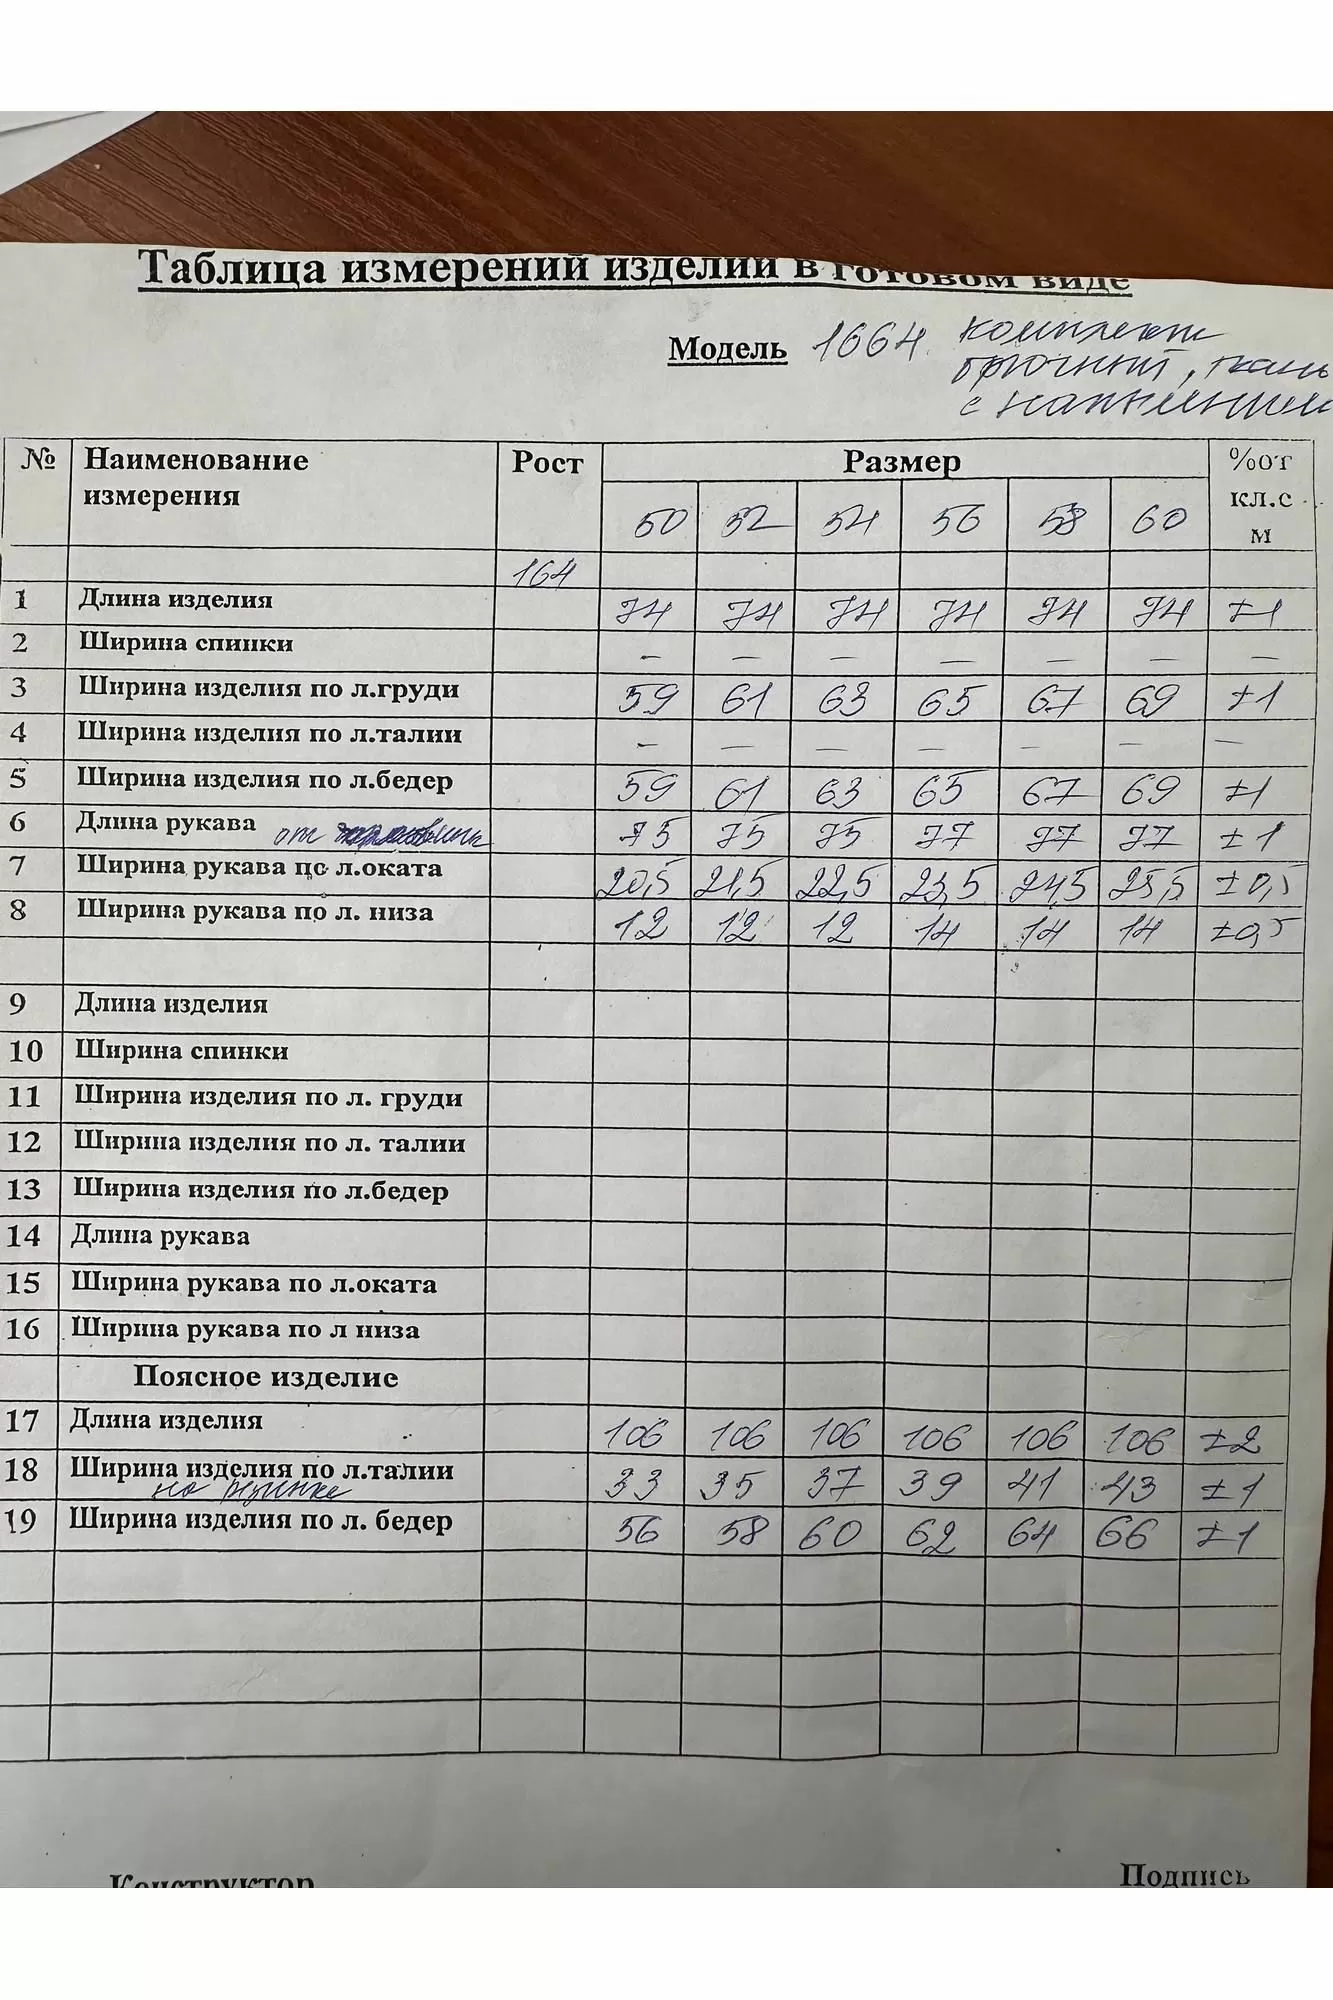 Таблица измерений изделий в готовом виде
Модель 1664 комплект
брючный, ткань
с
№ Наименование измерения Рост Размер %от кл.с м
50 52 54 56 58 60
164
1 Длина изделия 74 74 74 74 74 74 ±1
2 Ширина спинки – – – – – – –
3 Ширина изделия по л.груди 59 61 63 65 67 69 ±1
4 Ширина изделия по л.талии – – – – – – –
5 Ширина изделия по л.бедер 59 61 63 65 67 69 ±1
6 Длина рукава от 75 75 75 77 77 77 ±1
7 Ширина рукава по л.оката 20,5 21,5 22,5 23,5 24,5 25,5 ±0,5
8 Ширина рукава по л. низа 12 12 12 14 14 14 ±0,5
9 Длина изделия
10 Ширина спинки
11 Ширина изделия по л. груди
12 Ширина изделия по л. талии
13 Ширина изделия по л.бедер
14 Длина рукава
15 Ширина рукава по л.оката
16 Ширина рукава по л низа
Поясное изделие
17 Длина изделия 106 106 106 106 106 106 ±2
18 Ширина изделия по л.талии 33 35 37 39 41 43 ±1
на резинке
19 Ширина изделия по л. бедер 56 58 60 62 64 66 ±1
Конструктор Подпись